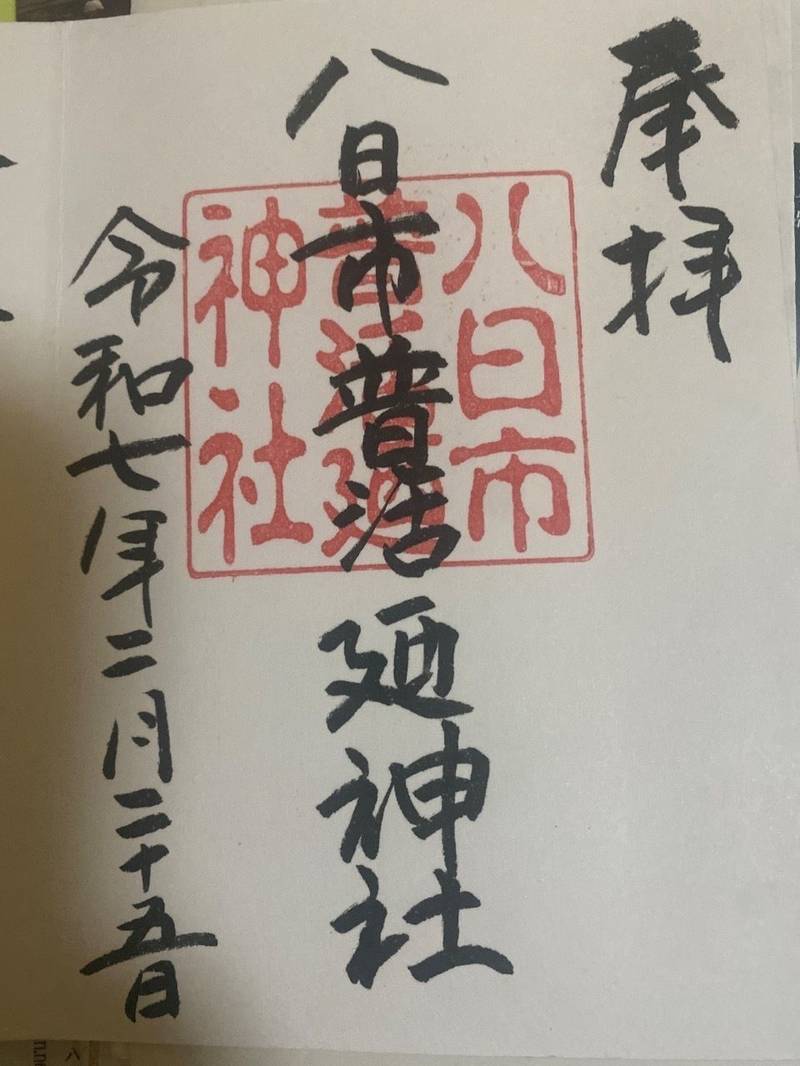 奉拝
八日市普活廼神社
令和七年二月二十五日
八日市
普活廼
神社